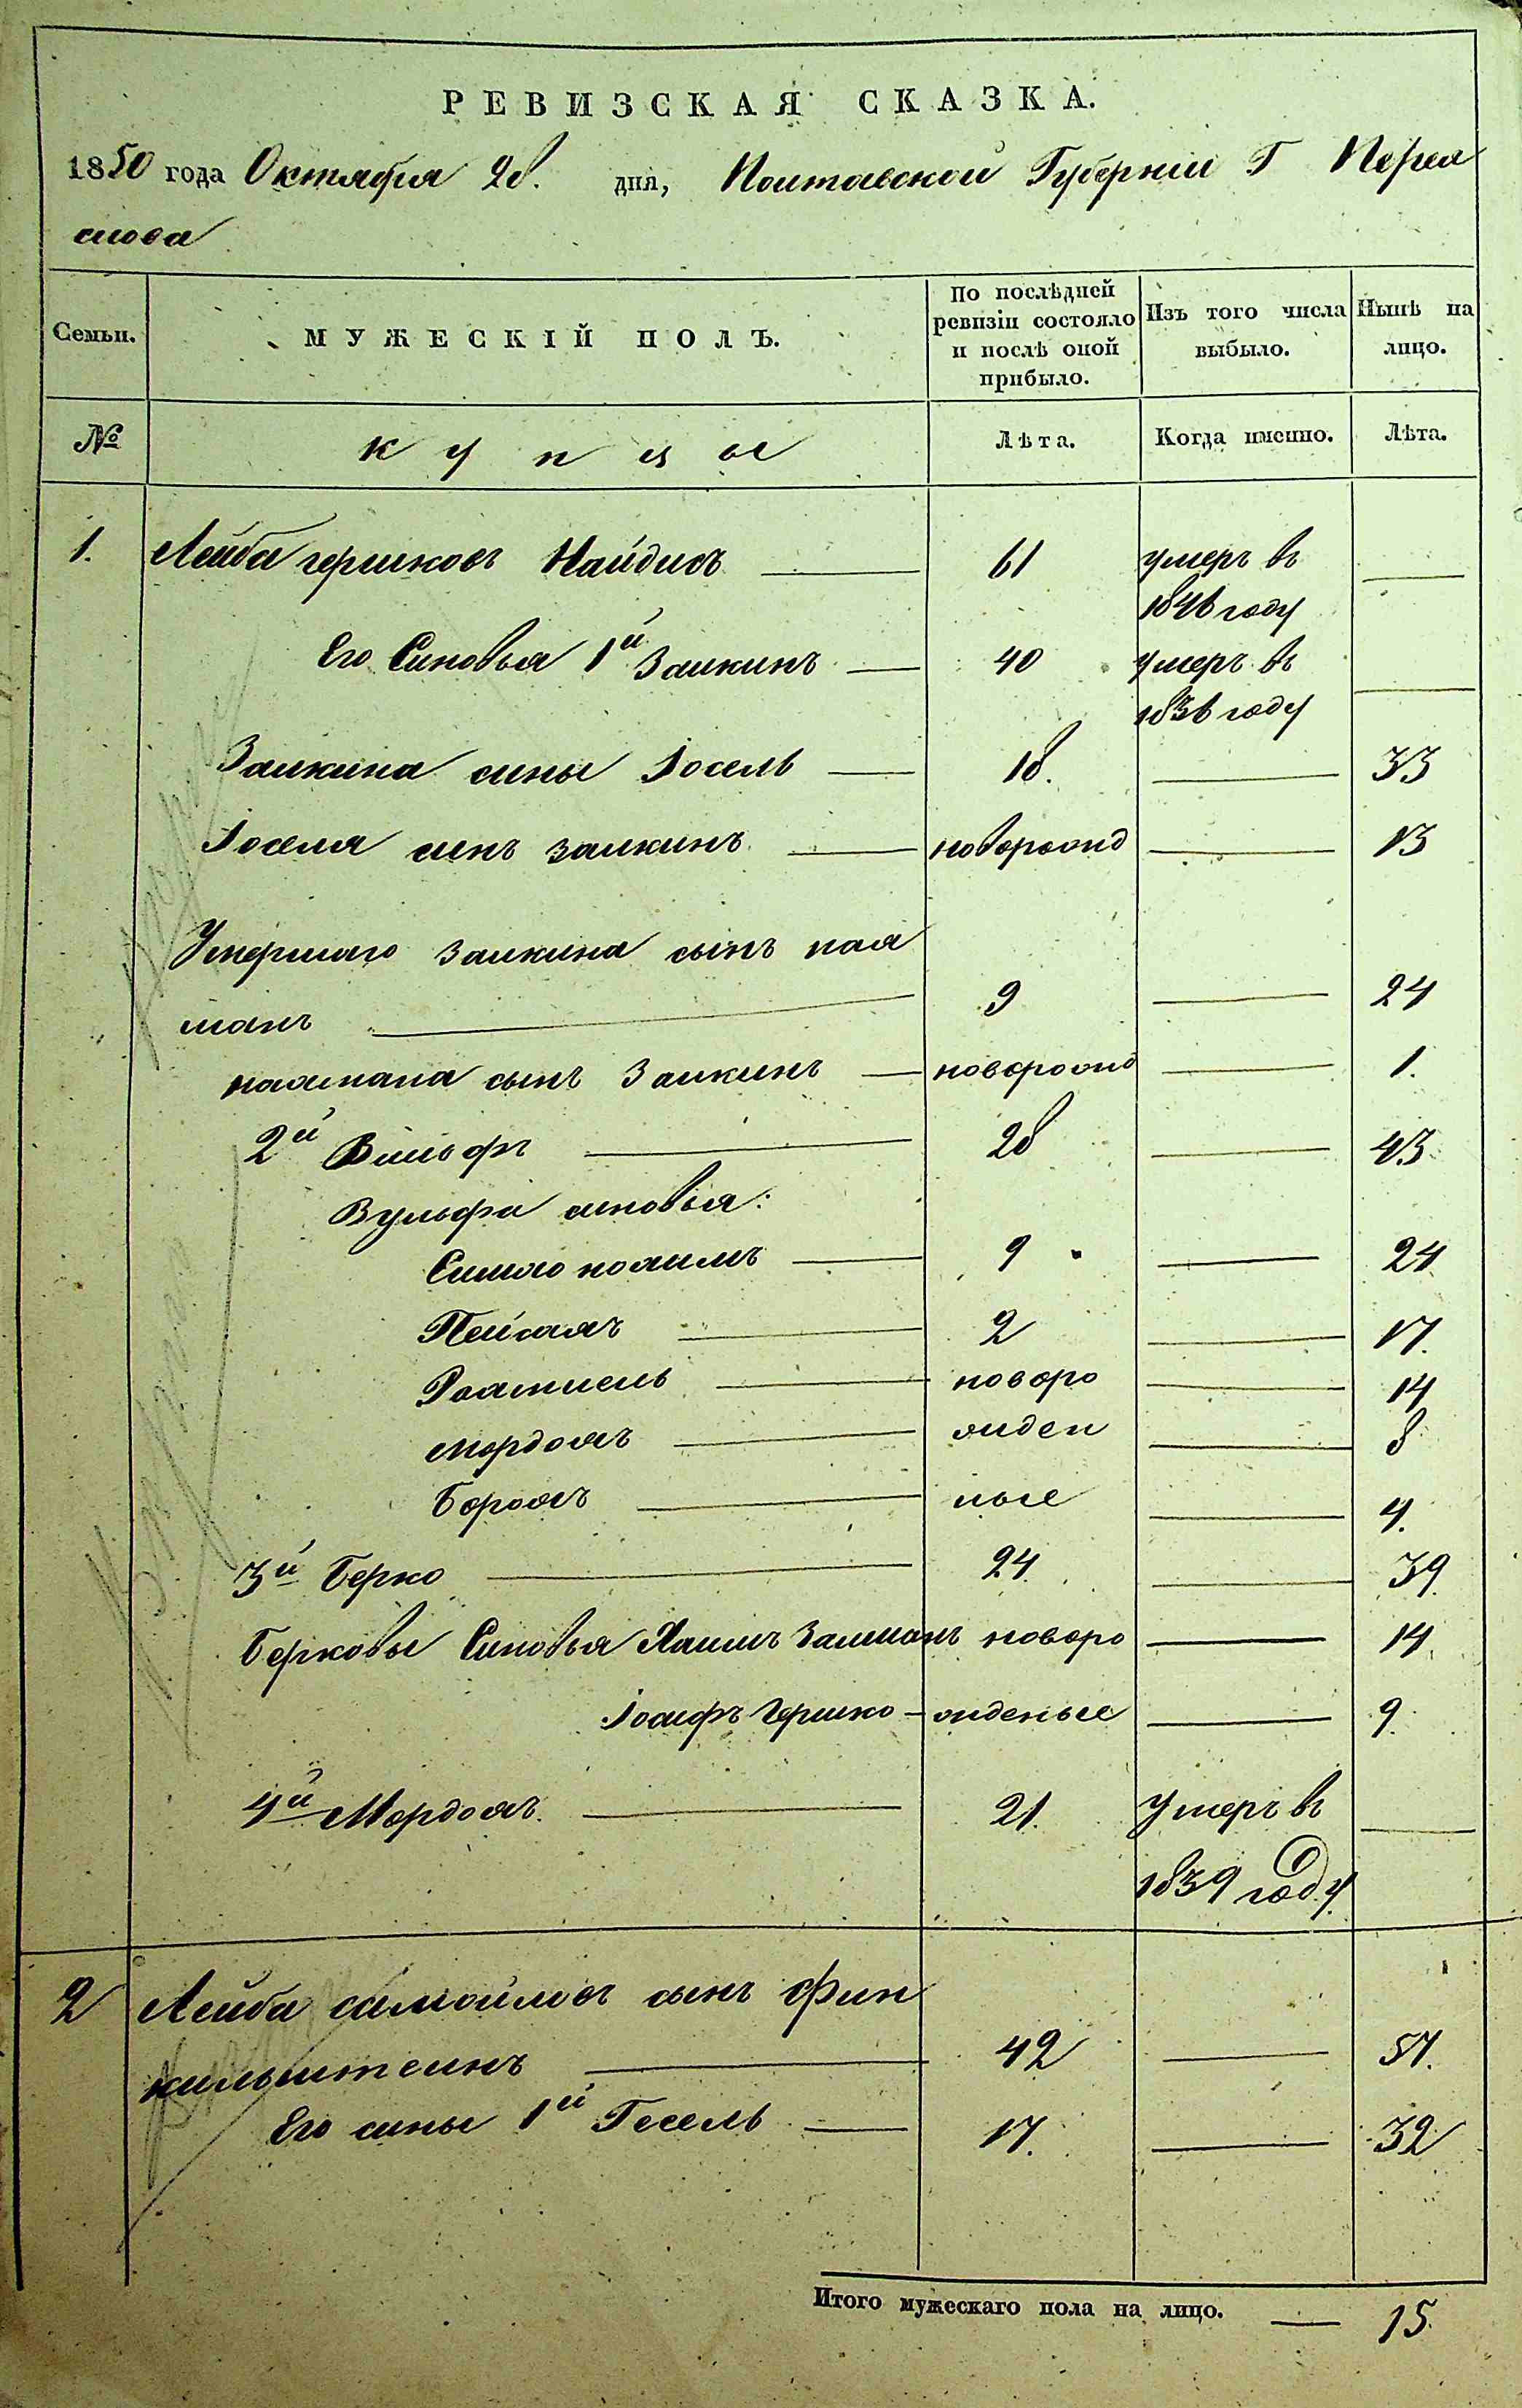 РЕВИЗСКАЯ СКАЗКА.
1850 года Октября 28. дня, Полтавской Губерніи Г Перея
слова
Семьи. МУЖЕСКІЙ ПОЛЪ. По послѣдней ревизіи состояло и послѣ оной прибыло. Изъ того числа выбыло. Нынѣ на лицо.
№ купцы Лѣта. Когда именно. Лѣта.
1. Лейба гершковъ Найдисъ — 61 умеръ въ —
1846 году
Его Синовья 1й Залкинъ — 40 умеръ въ
1836 году —
Залкина сины Іосель — 18. — 33
Іоселя синъ залкинъ — новорожд — 13
Умершаго залкина сынъ нах
манъ — 9 — 24
нахмана сынъ Залкинъ — новорожд — 1.
2й Вульфъ — 28 — 43
Вульфа синовья:
Симхо нохимъ — 9 — 24
Пейсахъ — 2 — 17.
новоро — 14
мордохъ — жден — 8
Борохъ — ные — 4.
3й Берко — 24 — 39
Берковы Синовья Хаимъ Залманъ новоро — 14
Іосифъ Гершко — жденые — 9.
4й Мордохъ. — 21. Умеръ въ —
1839 году
2 Лейба самойловъ сынъ Фин
кильштеинъ — 42 — 57.
Его сины 1й Гесель — 17. — 32
Итого мужескаго пола на лицо. — 15.